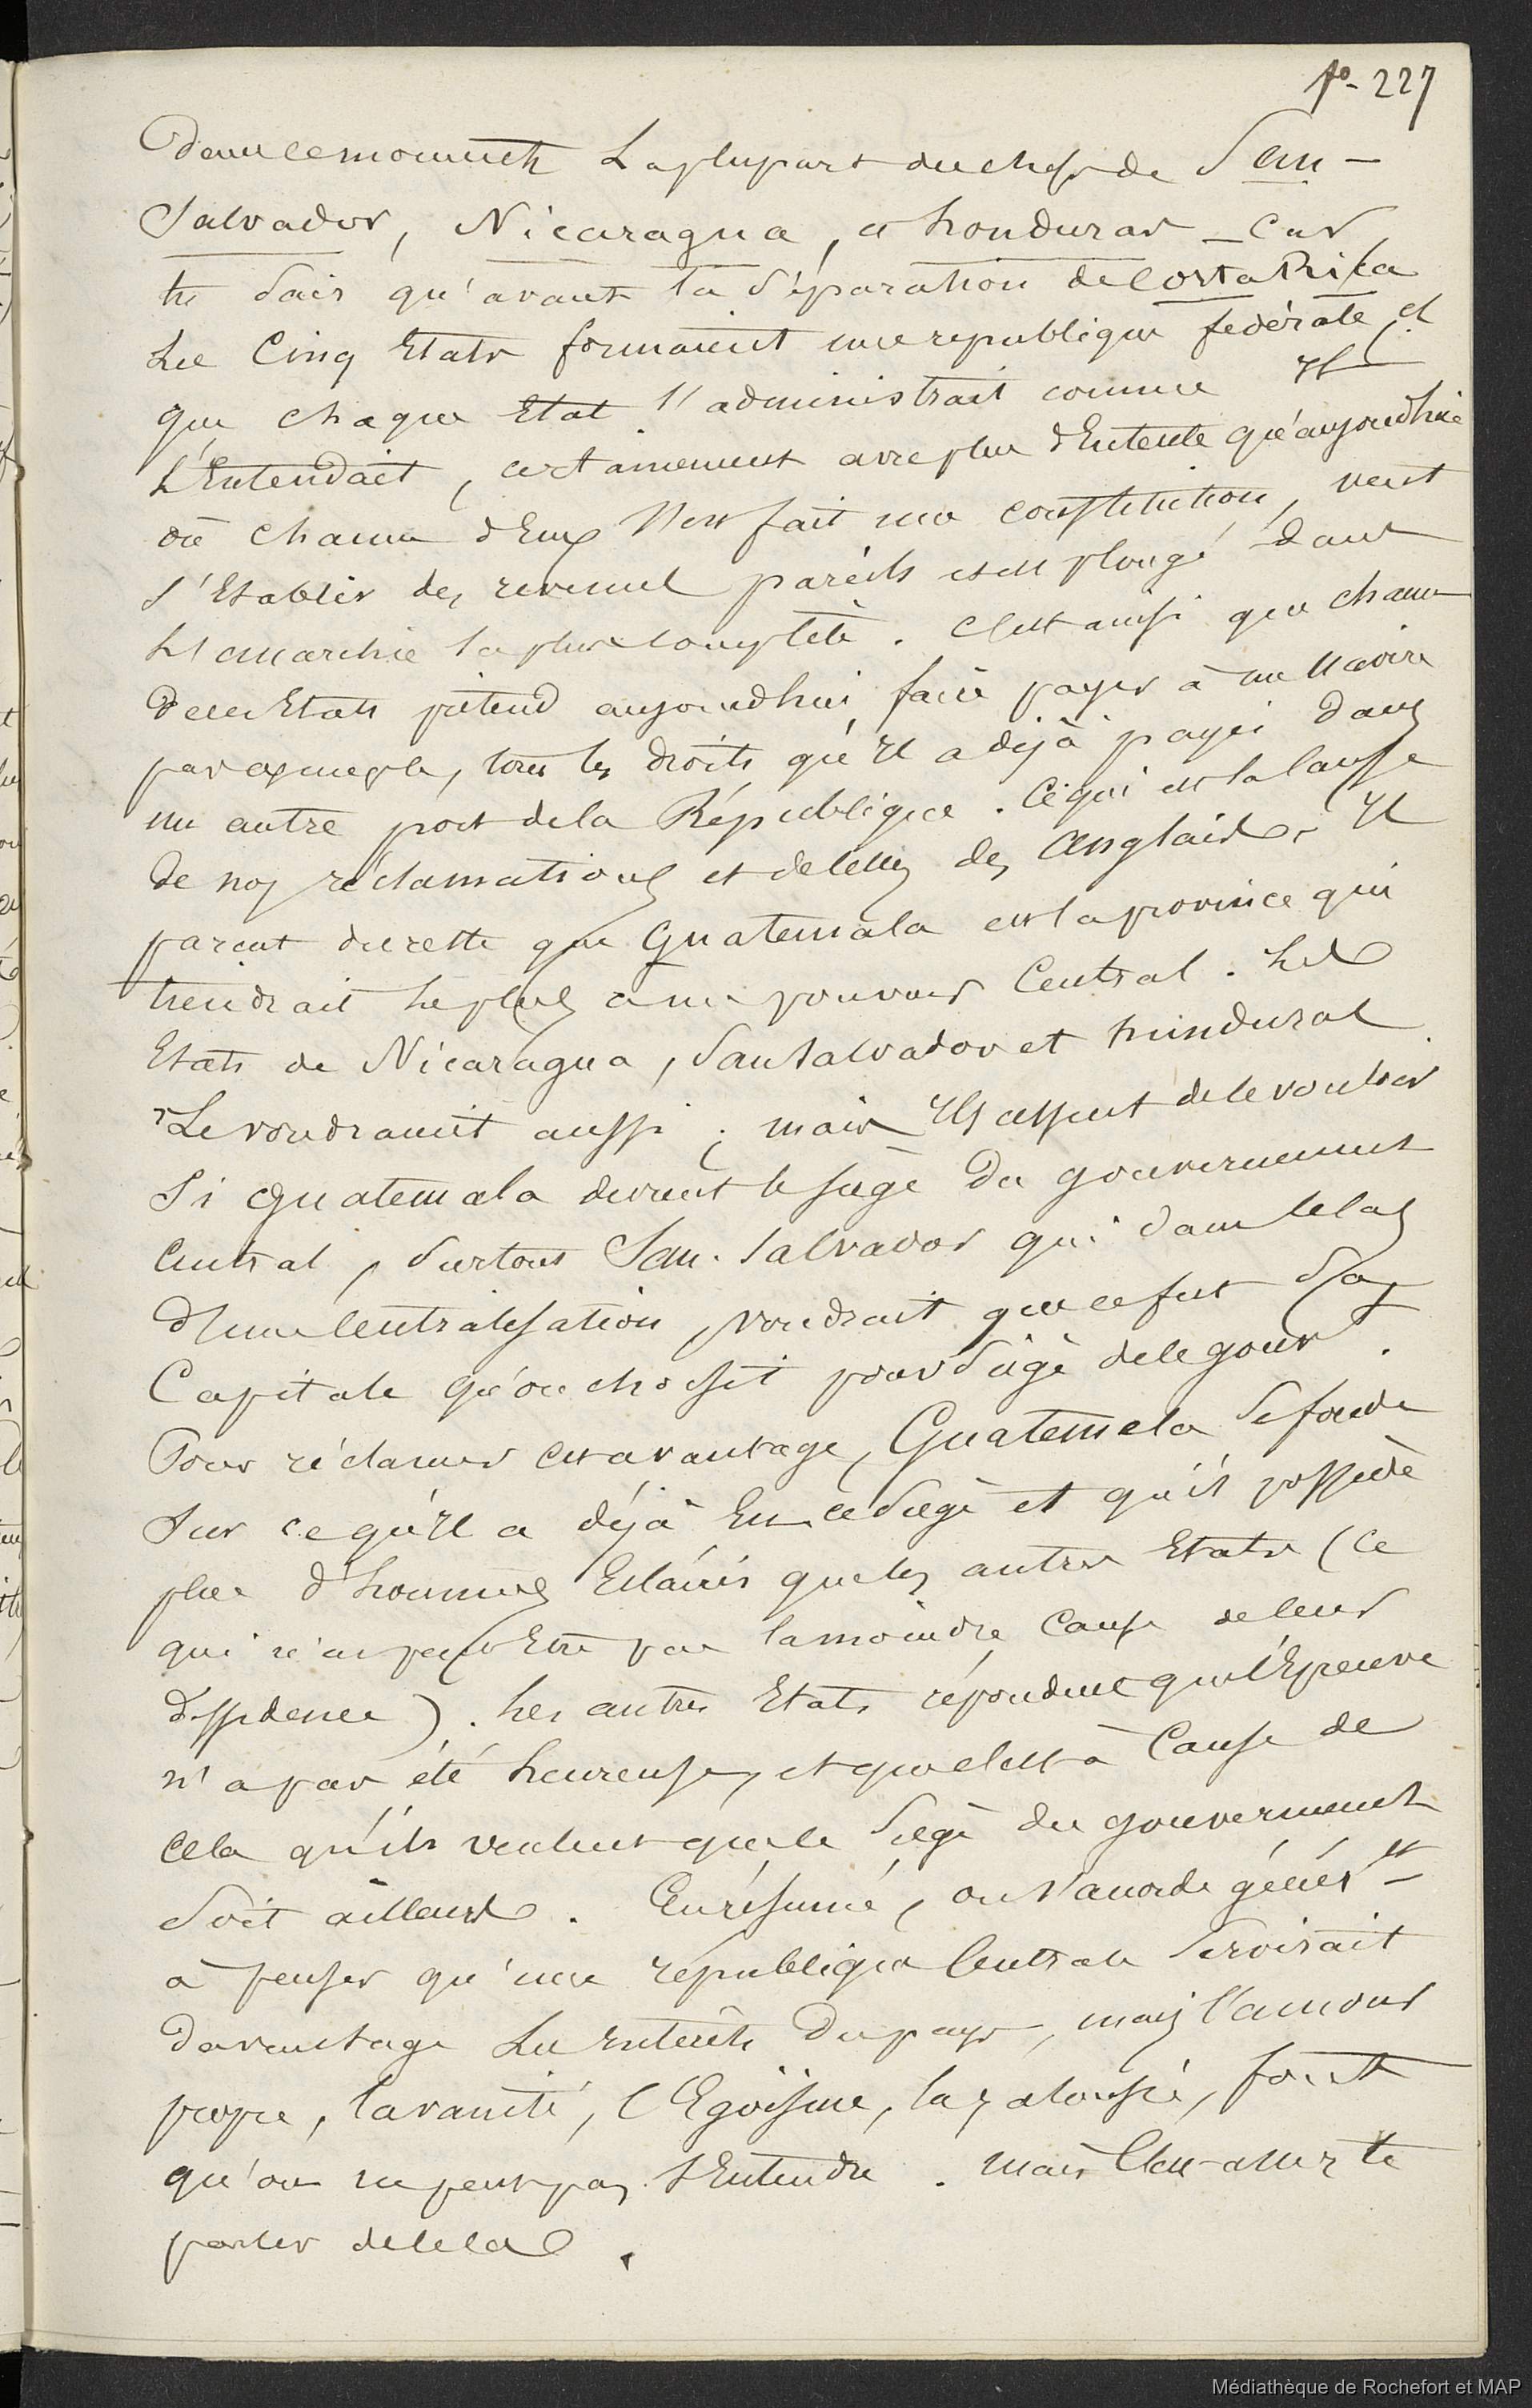 fo- 227
dans ce moment la plupart des chefs de San-
Salvador, Nicaragua, et honduras – Car
tu sais qu'avant la séparation de Costa Rica
Les Cinq Etats formaient une republique fedérale, et
que chaque Etat s'administrait comme Il
L'Entendait, certainement avec plus d'Entente qu'aujourdhui
où chacun d'Eux s'est fait une constitution, veut
s'Etablir des revenus pareils et est plongé dans
L'anarchie la plus complète. C'est ainsi que chacun
de ces Etats prétend aujourdhui faire payer à un Navire
par exemple, tous les droits qu'Il a déjà payés dans
un autre port de la République. Ce qui est la cause
de nos réclamations et de celles des Anglais. Il
parait du reste que Guatemala est la province qui
tiendrait le plus à un pouvoir Central. Les
Etats de Nicaragua, San Salvador et hunduras
Le voudraient aussi ; mais Ils cessent de le vouloir
Si Guatemala devient le siège du gouvernement
Central, surtout San-Salvador qui dans le cas
d'une Centralisation, voudrait que ce fut Sa
Capitale qu'on choisit pour Siège de le gouvt.
Pour réclamer cet avantage, Guatemala se fonde
sur ce qu'Il a déjà Eu ce siège et qu'il possède
plus d'hommes Eclairés que les autres Etats (ce
qui n'est peut Etre pas la moindre cause de leur
dissidence). Les autres Etats répondent que l'Epreuve
n'a pas été heureuse, et que c'est à Cause de
cela qu'ils veulent que le Siège du gouvernement
Soit ailleurs. En résumé, on s'accorde génért
à penser qu'une republique Centrale Servirait
davantage Les Interêts du pays, mais l'amour
propre, la vanité, l'Egoisme, la jalousie, font
qu'on ne peut pas s'Entendre. Mais C'en assez te
parler de cela.
Médiathèque de Rochefort et MAP